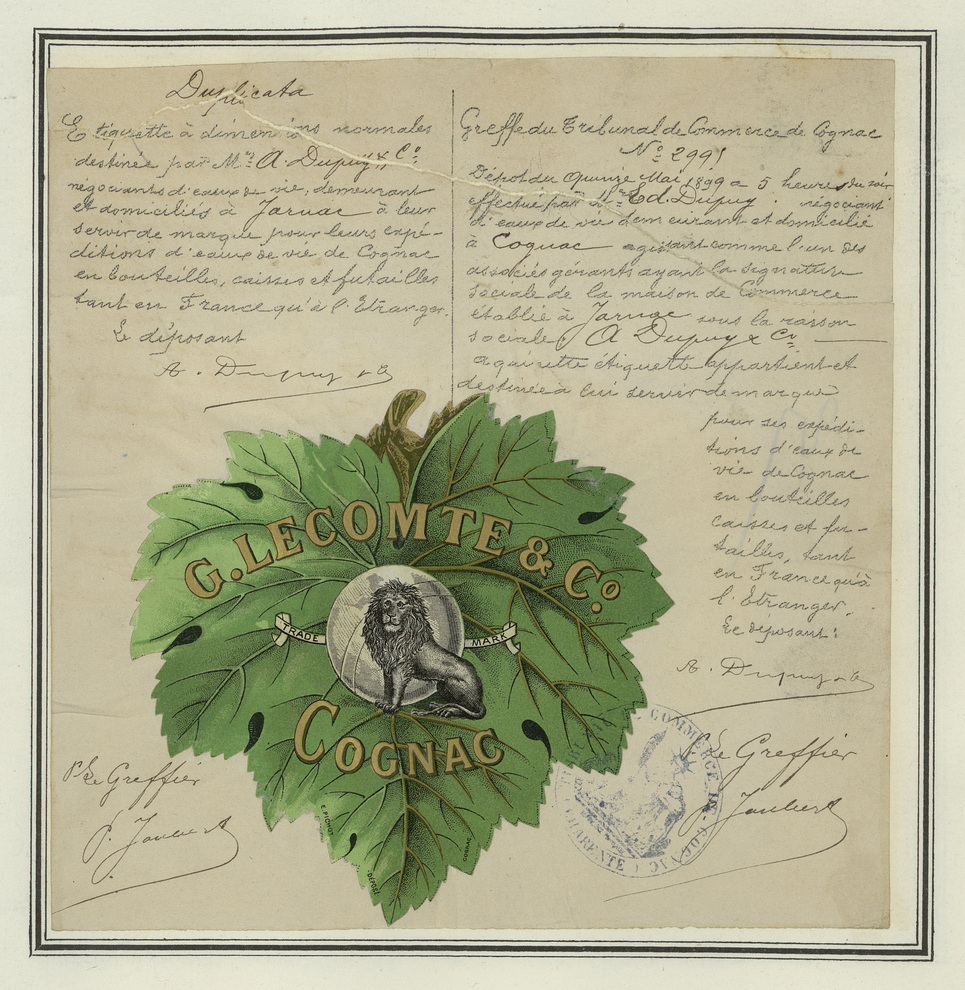 Duplicata
Etiquette à dimensions normales
destinée par Mrs A. Dupuy & Co
négociants d'eaux de vie, demeurant
et domiciliés à Jarnac à leur
servir de marque pour leurs expé-
ditions d'eaux de vie de Cognac
en bouteilles, caisses et futailles
tant en France qu'à l'Etranger.
Le déposant
A. Dupuy & Co
Greffe du Tribunal de Commerce de Cognac
No 2991
Dépôt du Quinze Mai 1899 à 5 heures du soir
effectué par Mr Ed. Dupuy négociant
d'eaux de vie demeurant et domicilié
à Cognac agissant comme l'un des
associés gérants ayant la signature
sociale de la maison de Commerce
établie à Jarnac sous la raison
sociale A Dupuy & Co
à qui cette étiquette appartient et
destinée à lui servir de marque
pour ses expédi-
tions d'eaux de
vie de Cognac
en bouteilles
caisses et fu-
tailles, tant
en France qu'à
l'Etranger.
Le déposant:
A. Dupuy & Co
G. LECOMTE & Co.
TRADE MARK
COGNAC
E. PICHOT
DÉPOSÉ
COGNAC
Pr Le Greffier
P. Joubert
Le Greffier
P. Joubert
COMMERCE DE COGNAC
CHARENTE